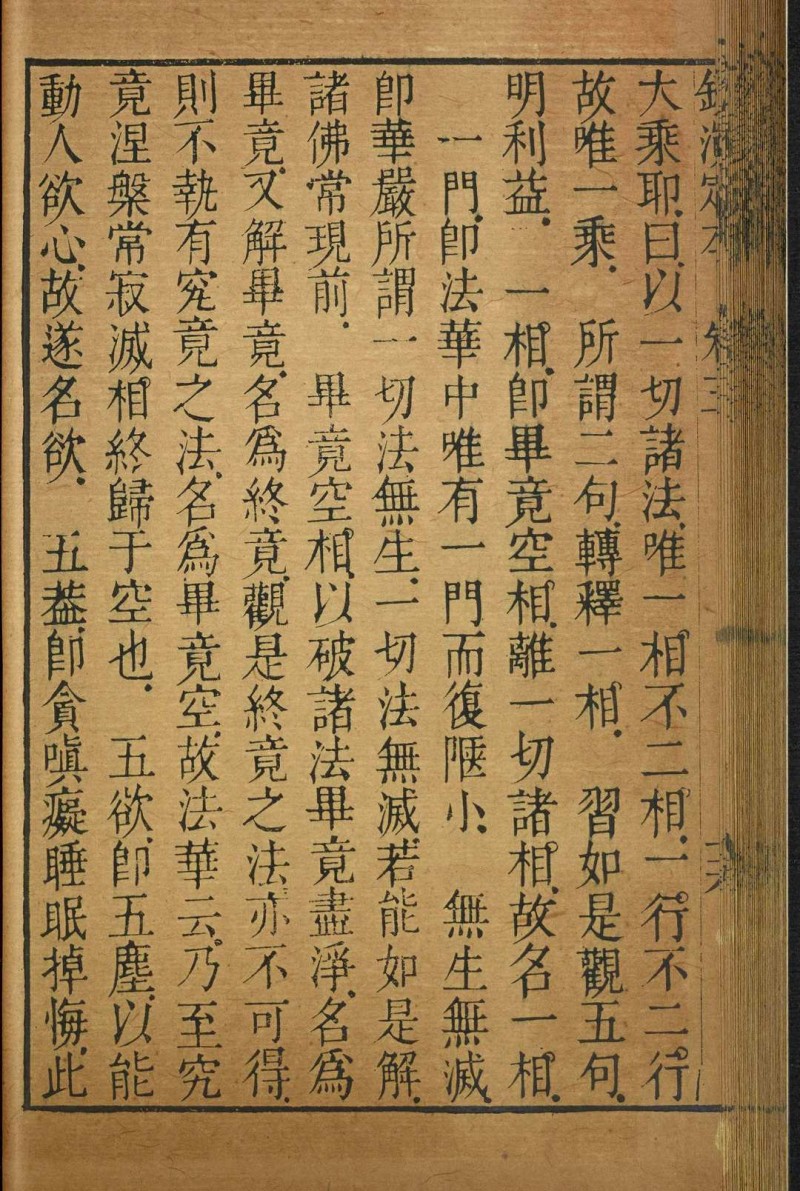 大乘耶.曰.以一切諸法.唯一相不二相.一行不二行
故唯一乘.　所謂二句.轉釋一相.　習如是觀五句.
明利益.　一相.卽畢竟空相.離一切諸相.故名一相.
一門.卽法華中唯有一門而復陿小.　無生無滅.
卽華嚴所謂一切法無生.一切法無滅.若能如是解.
諸佛常現前.　畢竟空相.以破諸法畢竟盡淨.名爲
畢竟.又解畢竟.名爲終竟.觀是終竟之法.亦不可得.
則不執有究竟之法.名爲畢竟空.故法華云.乃至究
竟涅槃常寂滅相.終歸于空也.　五欲.卽五塵.以能
動人欲心.故遂名欲.　五葢.卽貪嗔癡睡眠掉悔.此